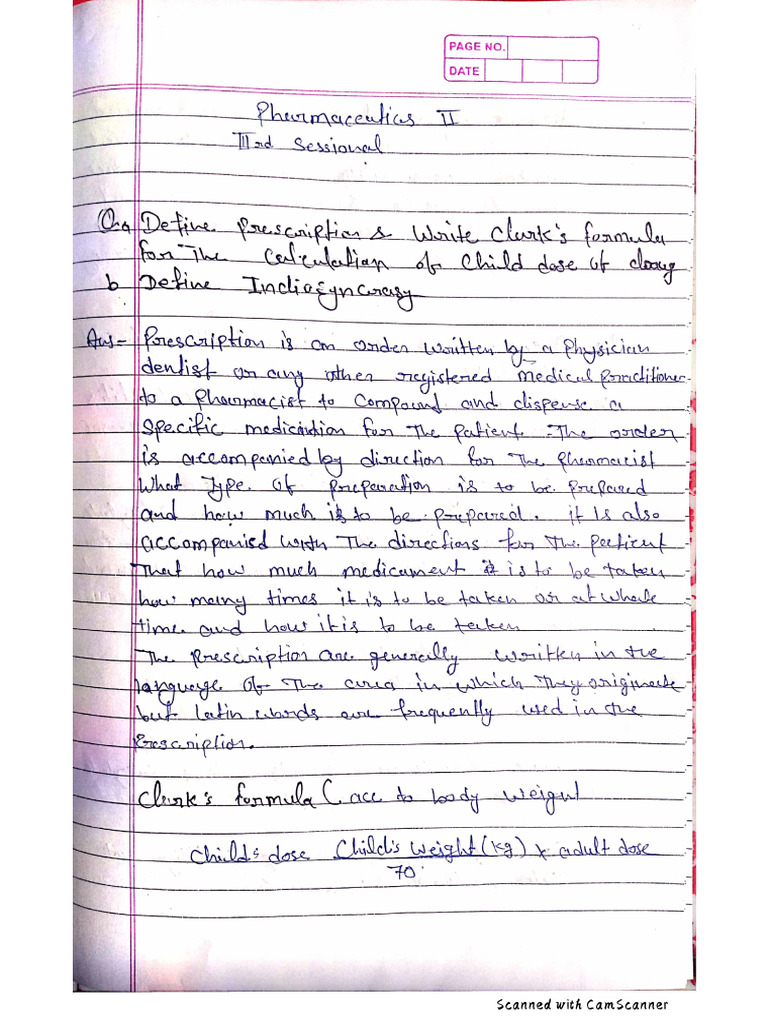 PAGE NO.
DATE
Pharmaceutics II
IIIrd Sessional
Q.a Define Prescription & Write Clurk's formula
for The Calculation of Child dose of drug
b Define Indiosyncrasy
Ans- Prescription is an order written by a Physician
dentist or any other registered medical Practitioner
to a Pharmacist to Compound and dispense a
specific medication for The patient - The order
is accompanied by direction for The pharmacist
What Type of preparation is to be prepared
and how much is to be prepared. it is also
accompanied with The directions for The patient
That how much medicament it is to be taken
how many times it is to be taken or at whate
time and how it is to be taken
The Prescription are generally written in the
language of The area in which They originate
but Latin words are frequently used in the
Prescription.
Clurk's formula (acc to body weight
Child's dose Child's Weight (kg) x adult dose
70
Scanned with CamScanner